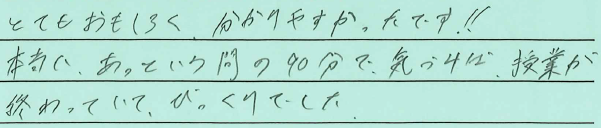 とてもおもしろく、分かりやすかったです!!
本当に、あっという間の90分で、気づけば、授業が
終わっていて、びっくりでした。